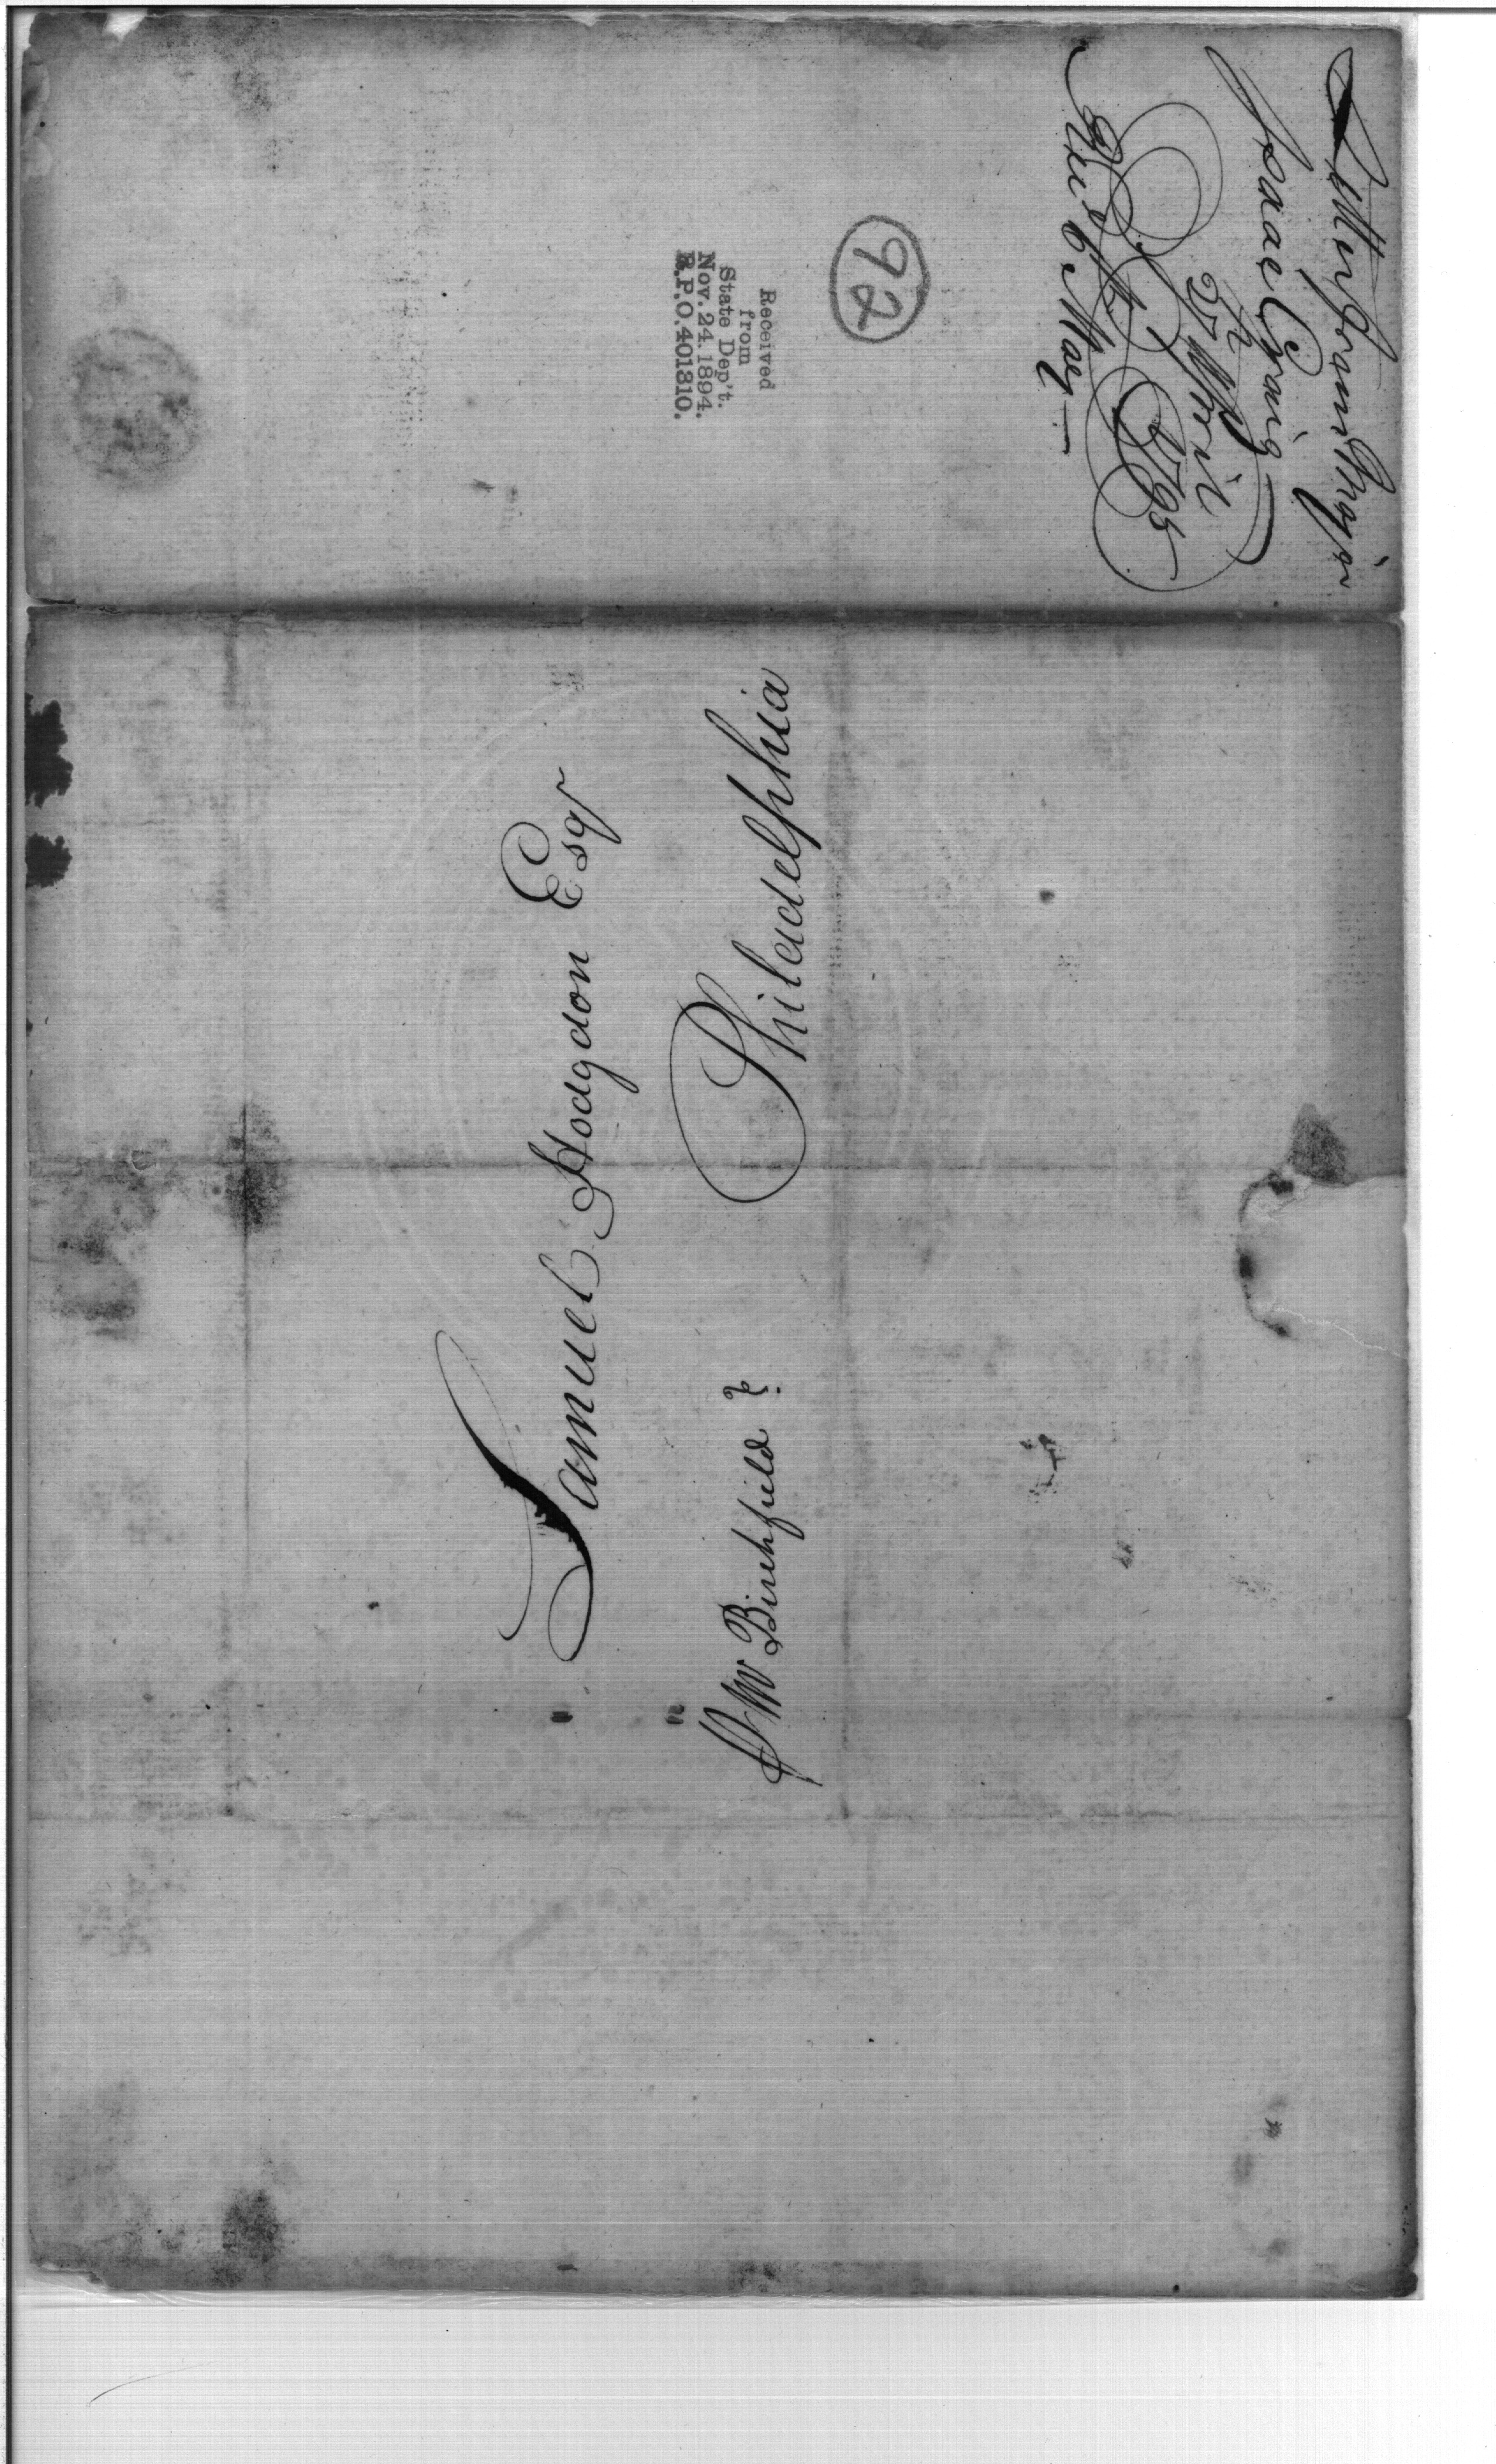 Letter from Major
Isaac Craig
25th April
1795
Rec'd 6th May
92
Received
from
State Dep't.
Nov. 24. 1894.
R.P.O. 401310.
Samuel Hodgdon Esqr
Philadelphia
Mr Birchfield